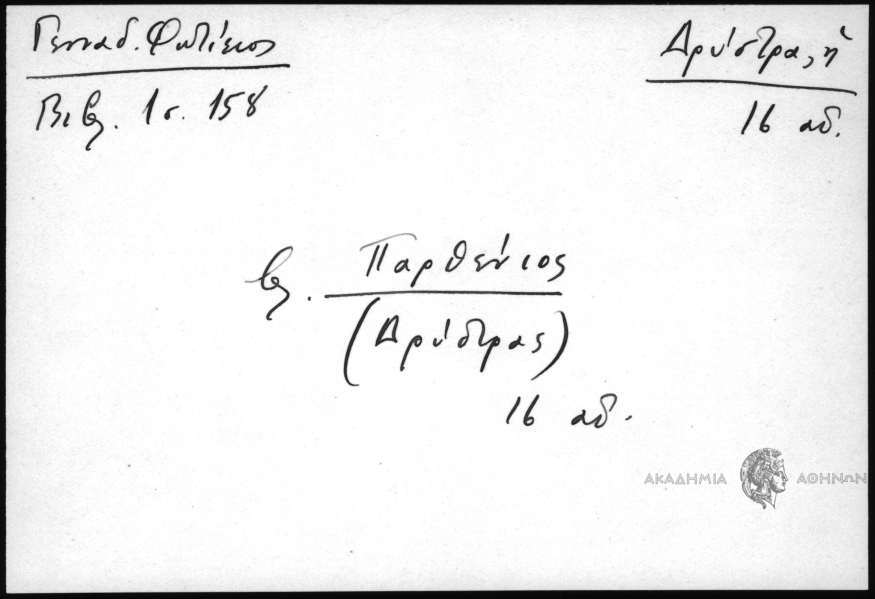 Γενναδ. Φωτίειος
Βιβ. 1 σ. 158
Δρύστρα, ἡ
16 αἰ.
βλ. Παρθένιος
(Δρύστρας)
16 αἰ.
ΑΚΑΔΗΜΙΑ ΑΘΗΝΩΝ